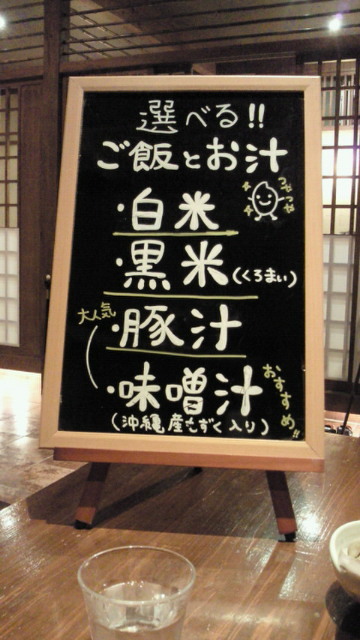 選べる!!
ご飯とお汁
・白米
つやつや
・黒米(くろまい)
大人気
・豚汁
・味噌汁
おすすめ!!
(沖縄産もずく入り)